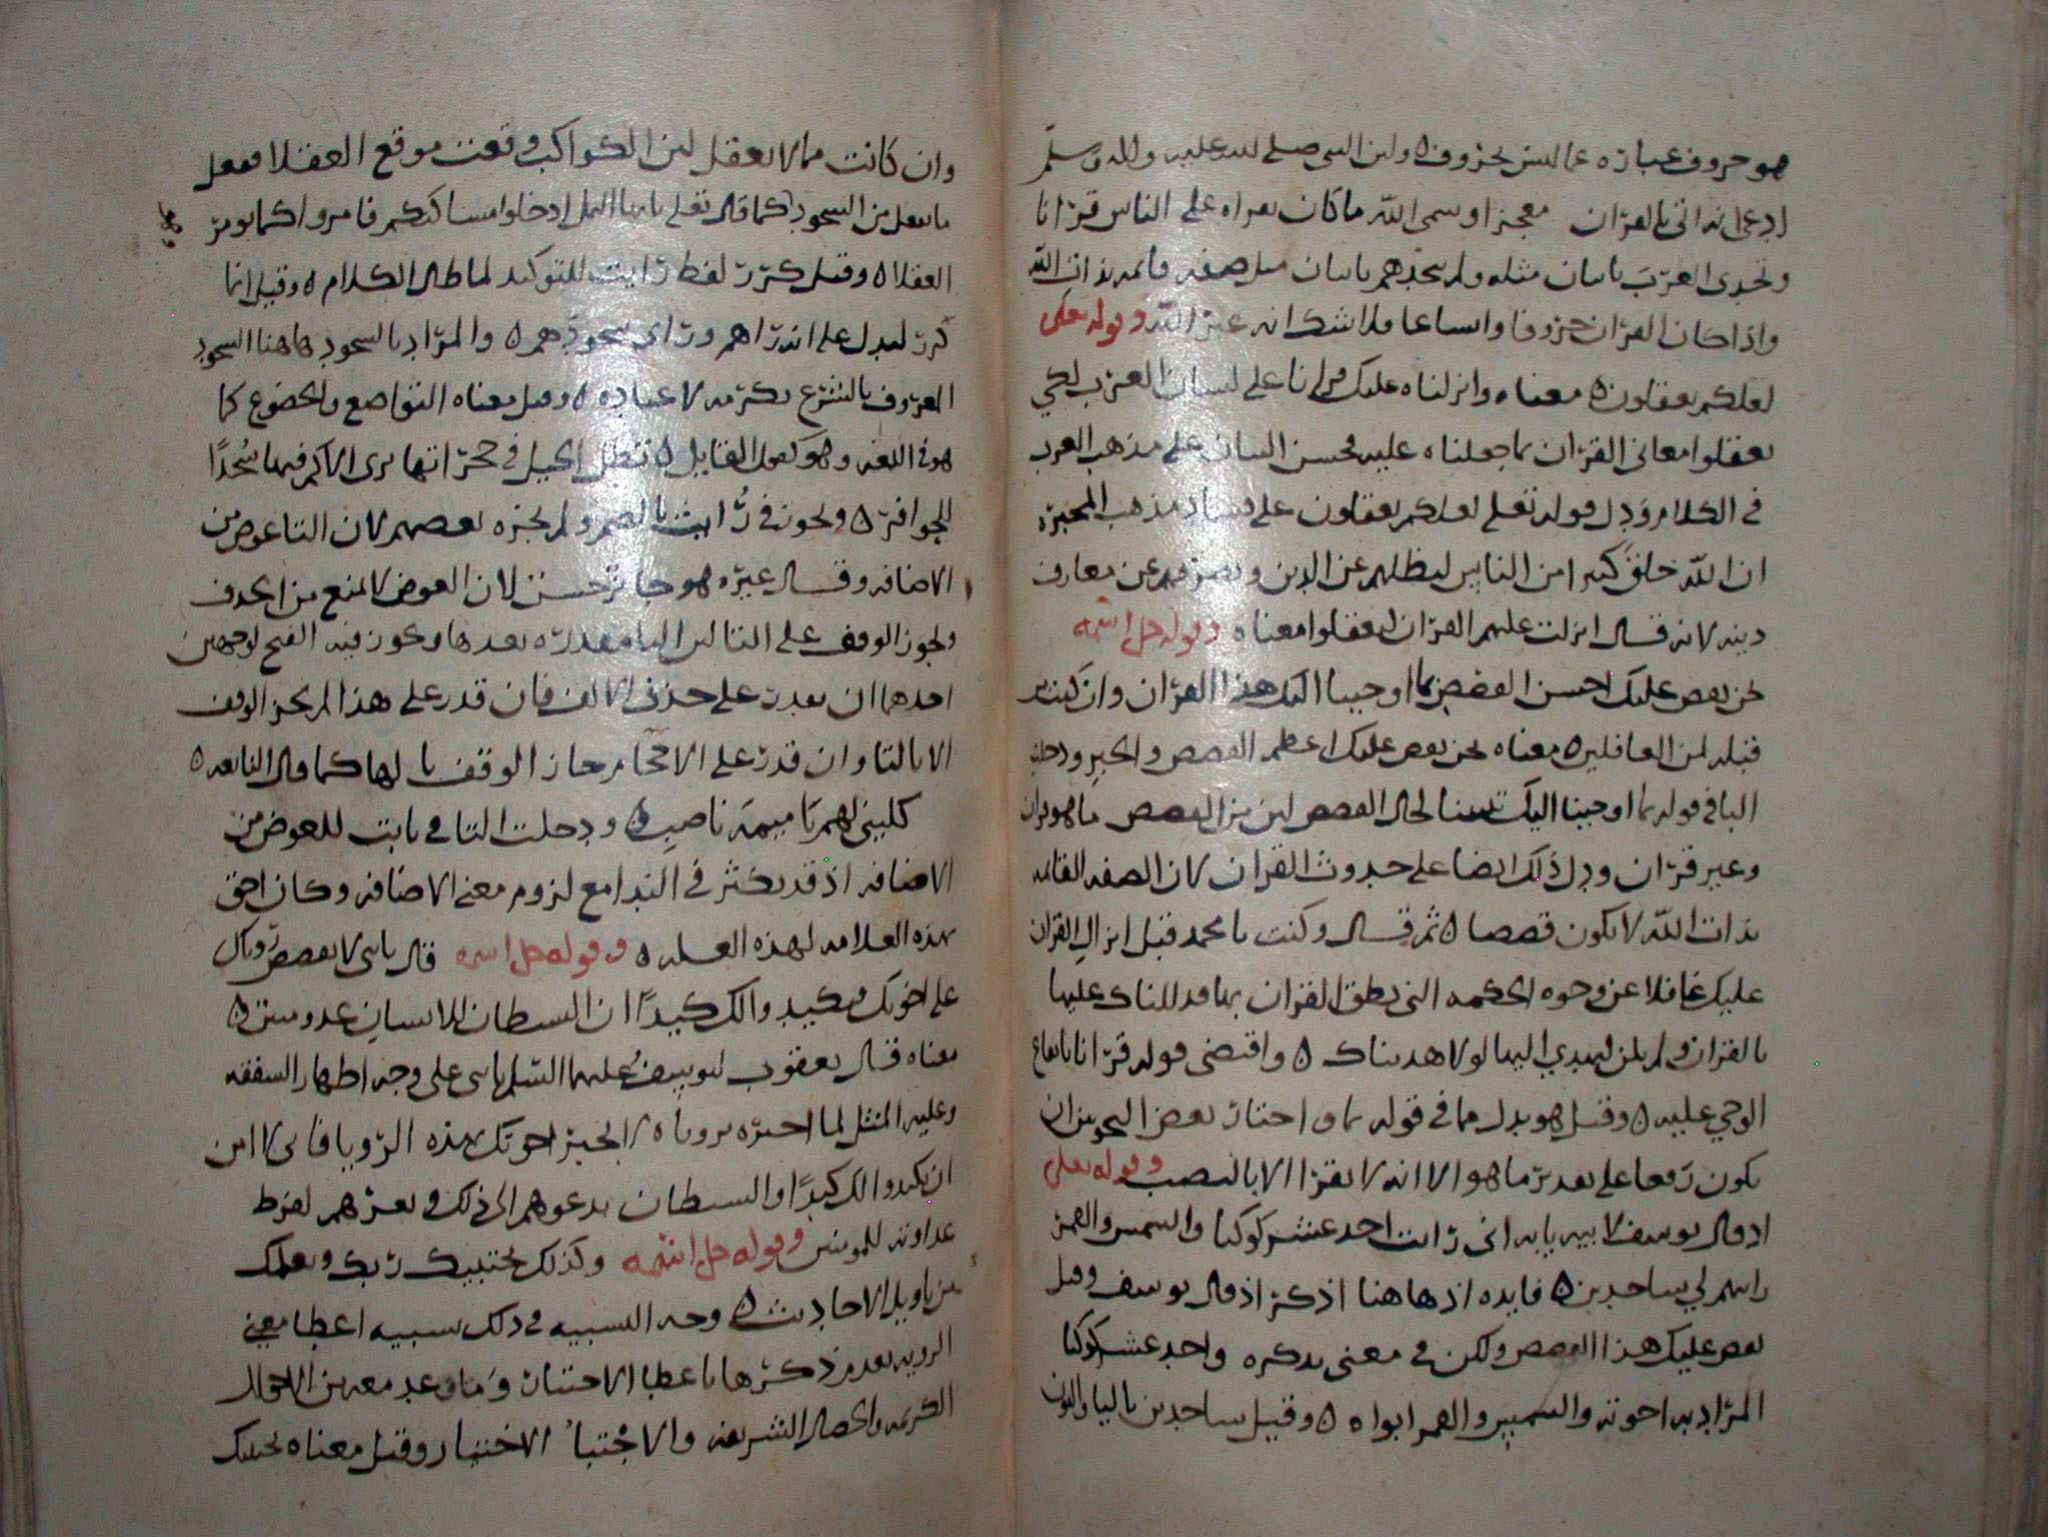 هو حروف عباره عما ليس بحروف ٥ ولان النبى صلى الله عليه واله وسلم
ادعى انه اتى بالقران معجزا وسمى الله ما كان يقراه على الناس قرانا
وتحدى العرب باتيان مثله ولم يتحدهم باتيان مثل صفه قائمه بذات الله
واذا كان القران حروفا واتساعا فلا شك انه غير الله وقوله تعلى
لعلكم تعقلون ٥ معناه وانزلناه عليك قرانا على لسان العرب لكي
يعقلوا معانى القران بما جعلناه عليه بحسن البيان على مذهب العرب
في الكلام ودل قوله تعلى لعلكم تعقلون على فساد مذهب المجبره
ان الله خلق كثيرا من الناس ليظلهم عن الدين ويصرفهم عن معارف
دينه لانه قال انزلت عليهم القران ليعقلوا معناه وقوله جل اسمه
نحن نقص عليك احسن القصص بما اوحينا اليك هذا القران وان كنت من
قبله لمن الغافلين ٥ معناه نحن نقص عليك اعظم القصص والخبر ودخلت
البا في قوله بما اوحينا اليك تبيينا لحال القصص لان من القصص ما هو قران
وغير قران ودل ذلك ايضا على حدوث القران لان الصفه القائمه
بذات الله لا يكون قصصا ٥ ثم قال وكنت يا محمد قبل انزال القران
عليك غافلا عن وجوه الحكمه التى نطق القران بها فدللناك عليها
بالقران ولم تكن لتهتدي اليها لولا هديناك ٥ واقتضى قوله قرانا بايقاع
الوحي عليه ٥ وقيل هو بدل مما في قوله بما واختار بعض النحويين ان
يكون رفعا على تقدير ما هو الا انه لا يقرا الا بالنصب وقوله تعلى
اذ قال يوسف لابيه يابه انى رايت احد عشر كوكبا والشمس والقمر
رايتهم لي ساجدين ٥ فايده اذ هاهنا اذكر اذ قال يوسف وقيل
نقص عليك هذا القصص ولكن في معنى نذكره واحد عشر كوكبا
المراد به اخوته والشمس والقمر ابواه ٥ وقيل ساجدين باليا والنون
وان كانت مما لا يعقل لان الكواكب وقعت موقع العقلا ففعل
ما يفعل من السجود كما قال تعلى يايها النمل ادخلوا مساكنكم فامروا كما يومر
العقلا ٥ وقيل كرر لفظ رايت للتوكيد لما طال الكلام ٥ وقيل انما
كرر ليدل على انه راهم وراى سجودهم ٥ والمراد بالسجود هاهنا السجود
المعروف بالشرع تكرمه لا عباده ٥ وقيل معناه التواضع والخضوع كما
هو في اللغه وهو كقول القايل ٥ تظل الخيل في حجراتها ترى الاكم فيها سُجّدًا
للحوافر ٥ ويجوز في رايت بالضم ولم يجزه بعضهم لان التا عوض من
الاضافه وقال غيره هو جايز حسن لان العوض لا يمنع من الحذف
ويجوز الوقف على التا لان اليا مقدره بعدها ويكون فيه الفتح لوجهين
احدهما ان يقدر على حذف الالف فان قدر على هذا لم يجز الوقف
الا بالتا وان قدر على الاقحام جاز الوقف بالها كما قال النابغه ٥
كلينى لهم يا اميمه ناصب ٥ ودخلت التا في يابت للعوض من
الاضافه اذ قد يكثر في الندا مع لزوم معنى الاضافه وكان احق
بهذه العلامه لهذه العله ٥ وقوله جل اسمه قال يابنى لا تقصص روياك
على اخوتك فيكيدوا لك كيدًا ان الشيطان للانسان عدو مبين ٥
معناه قال يعقوب ليوسف عليهما السلم يابنى على وجه اظهار الشفقه
وعليه المثل لما اخبره بروياه لا تخبر اخوتك بهذه الرويا فانى لا امن
ان يكيدوا لك كيدًا والشيطان يدعوهم الى ذلك ويغرهم لفرط
عداوته للمومنين وقوله جل اسمه وكذلك يجتبيك ربك ويعلمك
من تاويل الاحاديث ٥ وجه التشبيه في ذلك تشبيه اعطا معنى
الرويه بعد من ذكرها باعطا الاختيار وما وعد معه من الاحوال
الكريمه والخصال الشريفه والاجتبا الاختيار وقيل معناه يجتبيك